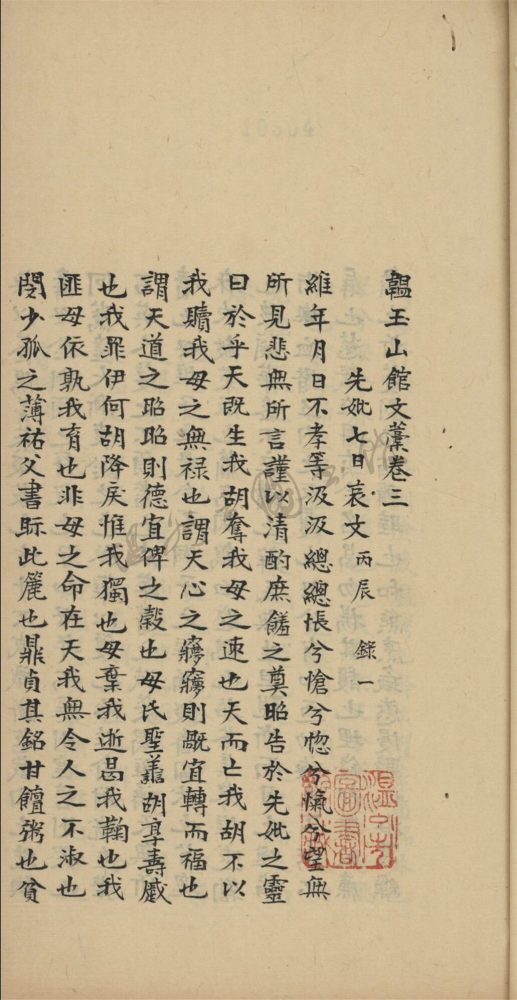 韞玉山館文藁卷三
先妣七日哀文 丙辰 錄一
維年月日不孝等汲汲總總悵兮愴兮惚兮愾兮望無
所見悲無所言謹以清酌庶饈之奠昭告於先妣之靈
曰於乎天既生我胡奪我母之速也天而亡我胡不以
我贖我母之無禄也謂天心之夢夢則既宜轉而福也
謂天道之昭昭則德宜俾之穀也母氏聖善胡享壽
也我罪伊何胡降戾惟我獨也母棄我逝曷我鞠也我
匪母依孰我育也非母之命在天我無令人之不淑也
閔少孤之薄祐父書眎此簏也鼎貞其銘甘饘粥也貧